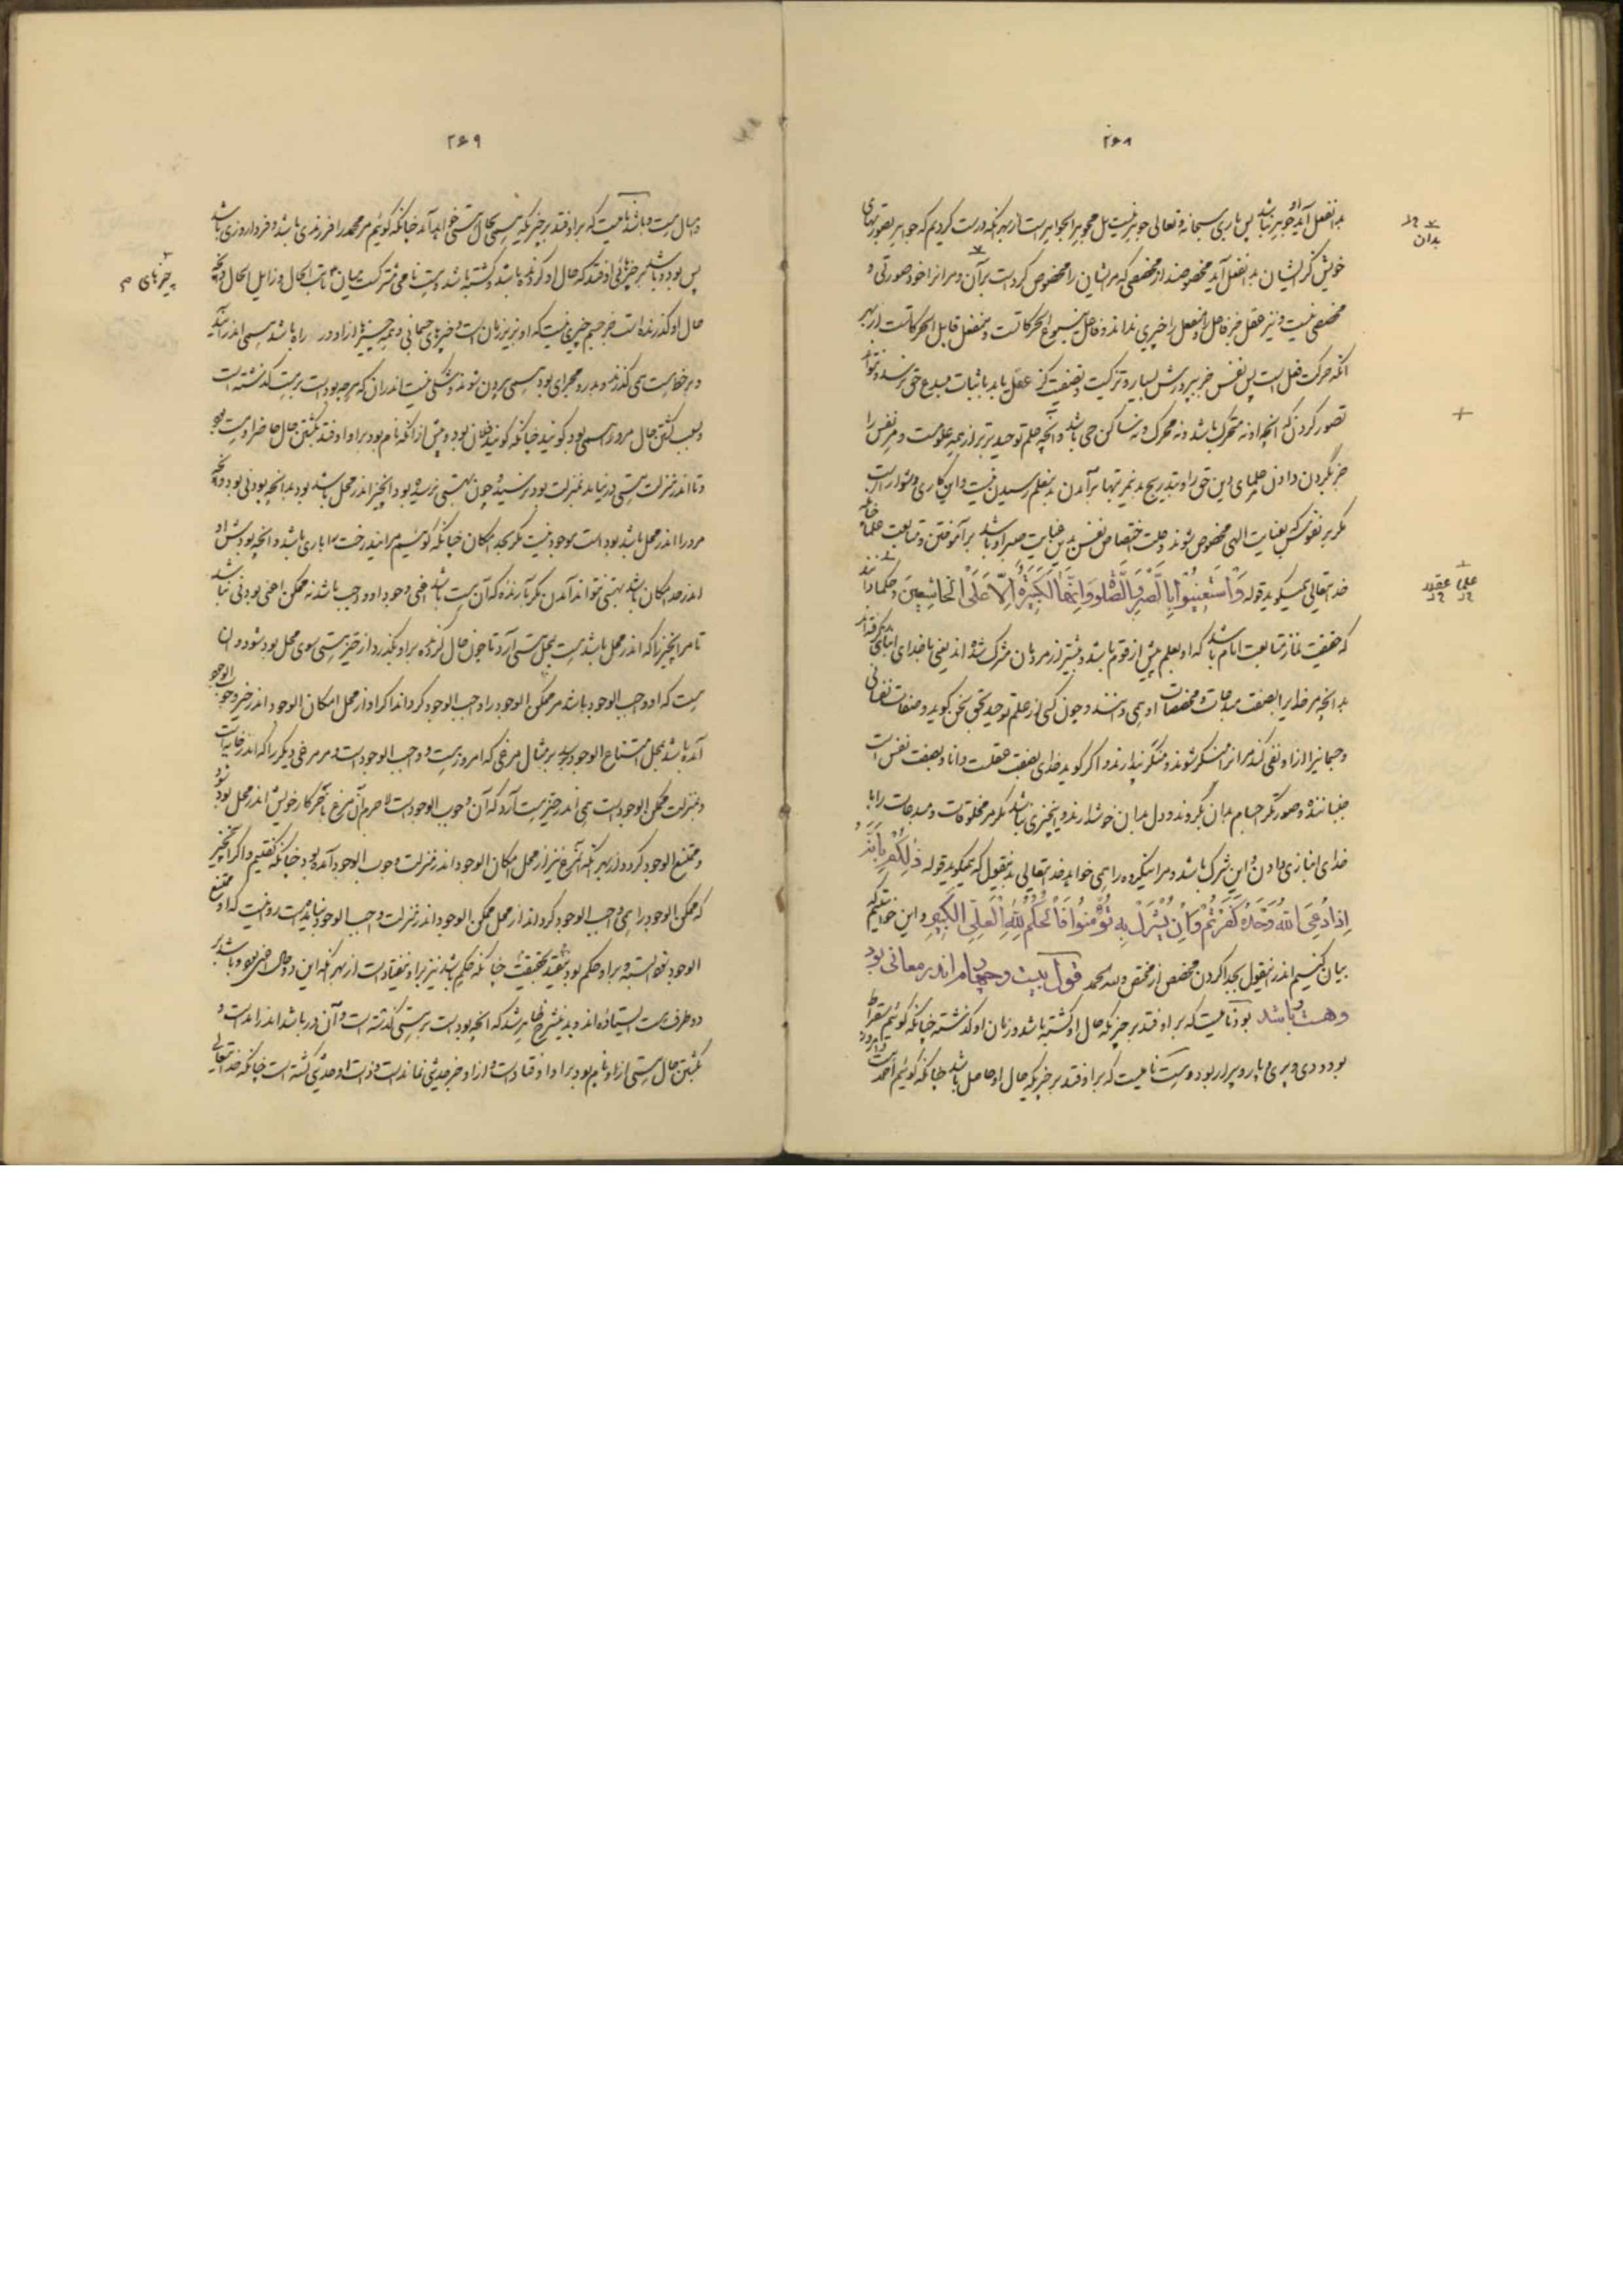 ۲۶۸
بدان فعل آید او جوهر نباشد پس باری سبحانه و تعالی جوهر نیست بل مجوهر الجواهرست از بهر آنکه درست کردیم که جواهر بصورتهای
خویش کز ایشان بدان فعل آید مخصوص‌اند از مخصصی که مر ایشان را مخصوص کرد است بر آن و مر آنرا خود صورتی و
مخصصی نیست و نیز عقل جز فاعل را و منفعل را چیزی نداند و فاعل ینبوع الحرکاتست و منفعل قابل الحرکاتست از بهر
آنکه حرکت فعل است پس نفس جز بپرورش بسیار و ترکیت و تصفیت کز عقل یابد باثبات مبدع حق نرسد و نتواند
تصور کردن که آنچه او نه متحرک باشد و نه محرک و نه ساکن حی باشد و آنچه علم توحید برتر از همه علومست و مر نفس را
جز بگردن دادن علمای دین حق را و بتدریج بدین مرتبتها برآمدن بدین علم رسیدن نیست و این کاری دشوار است
مگر بر نفوسی که بعنایت الهی مخصوص شوند و علت اختصاص نفس بدین عنایت صبر او باشد بر آموختن و متابعت علما چنانکه
خدایتعالی همیگوید قوله وَاسْتَعِینُوا بِالصَّبْرِ وَالصَّلوةِ وَاِنَّهَا لَکَبِیرَةٌ اِلّا عَلَی الْخَاشِعِینَ و حکما دانند
که حقیقت نماز متابعت امام باشد که او بعلم پیش از قوم باشد و بیشتر از مردمان مشرک شده‌اند یعنی با خدای انبازی گرفته‌اند
بدانچه مر خدایرا بصفت مبدعات و مخصصات او همی دانند و چون کسی از علم توحید بحق سخن گوید و صفات نفسانی
و جسمانی را از او نفی کند مر آنرا منکر شوند و منکر پندارند و اگر گوید خدای بصفت عقلست دانا و بصفت نفس است
جنباننده و صورتگر اجسام بدان بگروند و دل بدان خوش دارند و این چیزی نباشد مگر مر مخلوقات و مبدعات را با
خدای انبازی دادن و این شرک باشد و مر اینگروه را همی خواهد خدایتعالی بدین قول که همیگوید قوله ذٰلِکُمْ بِاَنَّهُ
اِذَا دُعِیَ اللهُ وَحْدَهُ کَفَرْتُمْ وَاِنْ یُشْرَکْ بِهِ تُؤْمِنُوا فَالْحُکْمُ لِلّٰهِ الْعَلِیِّ الْکَبِیرِ و این خواستیم که
بیان کنیم اندر این قول بجدا کردن مخصص از مختص و لله الحمد قول بیست و چهارم اندر معانی بود
و هست و باشد بود نامیست که بر او فتد بر چیز که حال او گشته باشد و زمان او گذشته چنانکه گوئیم سقراط
بود و دی و پری و پار و پیرار بود و هست نامیست که بر او فتد بر چیزیکه حال او حاصل باشد چنانکه گوئیم احمد است
بدان
علمی عقیلد
۲۶۹
و سال هست و باشد نامیست که بر او فتد بر چیزیکه نیستی بحال هستی خواهد آمد چنانکه گوئیم مر محمد را فرزندی باشد و فردا روزی باشد
پس بود و باشد مر چیزهائی اوفتد که حال او گردنده باشد و گشته باشد و هست نامی مشترکست میان ثابت الحال و زایل الحال و آنچه
حال او گذرنده است جز جسم چیزی نیست که او بزیر زمان است و چیزهای جسمانی و همه چیزها را از او در راه باشد همی اندر آیند
و بر خط هست همی گذرند و بدر و مجرای بود همی بیرون شوند و شکی نیست اندر آن که هر چه بوده است بر هست گذشته است
و بسبب گشتن حال مر او را همی بود گویند چنانکه گویند فلان بود و پیش از آنکه نام بود بر او اوفتد بگشتن حال حاضر او هست بود
و تا اندر منزلت هستی در نیاید بمنزلت بود نرسد و چون بهستی نرسیده بود آن چیز اندر محل باشد بود بدانچه بودنی بود و آنچه
مر او را اندر محل باشد بود است موجود نیست مگر بحد امکان چنانکه گوئیم مر این درخت را باری باشد و آنچه بودش او
اندر حد امکان باشد بهستی نتواند آمدن مگر بآرنده که آن هست باشد اعنی وجود او واجب باشد نه ممکن اعنی بودنی نباشد
تا مر آن چیز را که اندر محل باشد هست بمحل هستی آرد تا چون حال گردنده بر او بگذرد از حیز هستی سوی محل بود شود و آن
هست که او واجب الوجود باشد مر ممکن الوجود را واجب الوجود گرداند اگر او از محل امکان الوجود اندر حیز وجوب الوجود
آمده باشد بمحل امتناع الوجود رسد بر مثال مرغی که امروز هست و واجب الوجود است و مر مرغی دیگر را که اندر خایه است
و بمنزلت ممکن الوجود است همی اندر حیز هست آرد که آن وجوب الوجود است لاجرم آن مرغ بآخر کار خویش اندر محل بود شود
و ممتنع الوجود گردد از بهر آنکه آن مرغ نیز از محل امکان الوجود اندر منزلت وجوب الوجود آمده بود چنانکه گفتیم و اگر آن چیز
که ممکن الوجود را همی واجب الوجود گرداند از محل ممکن الوجود اندر منزلت واجب الوجود نیامده است روا نیست که او ممتنع
الوجود
دو طرف هست ایستاده‌اند و بدین شرح ظاهر شد که آنچه بود است بر هستی گذشته است و آن در باشد اندر آمد است و
بگشتن حال هستی از او نام بود بر او اوفتاد است و از او خبر حدیثی نماند است و ذات او حدیثی گشته است چنانکه خدایتعالی
چیزهای م